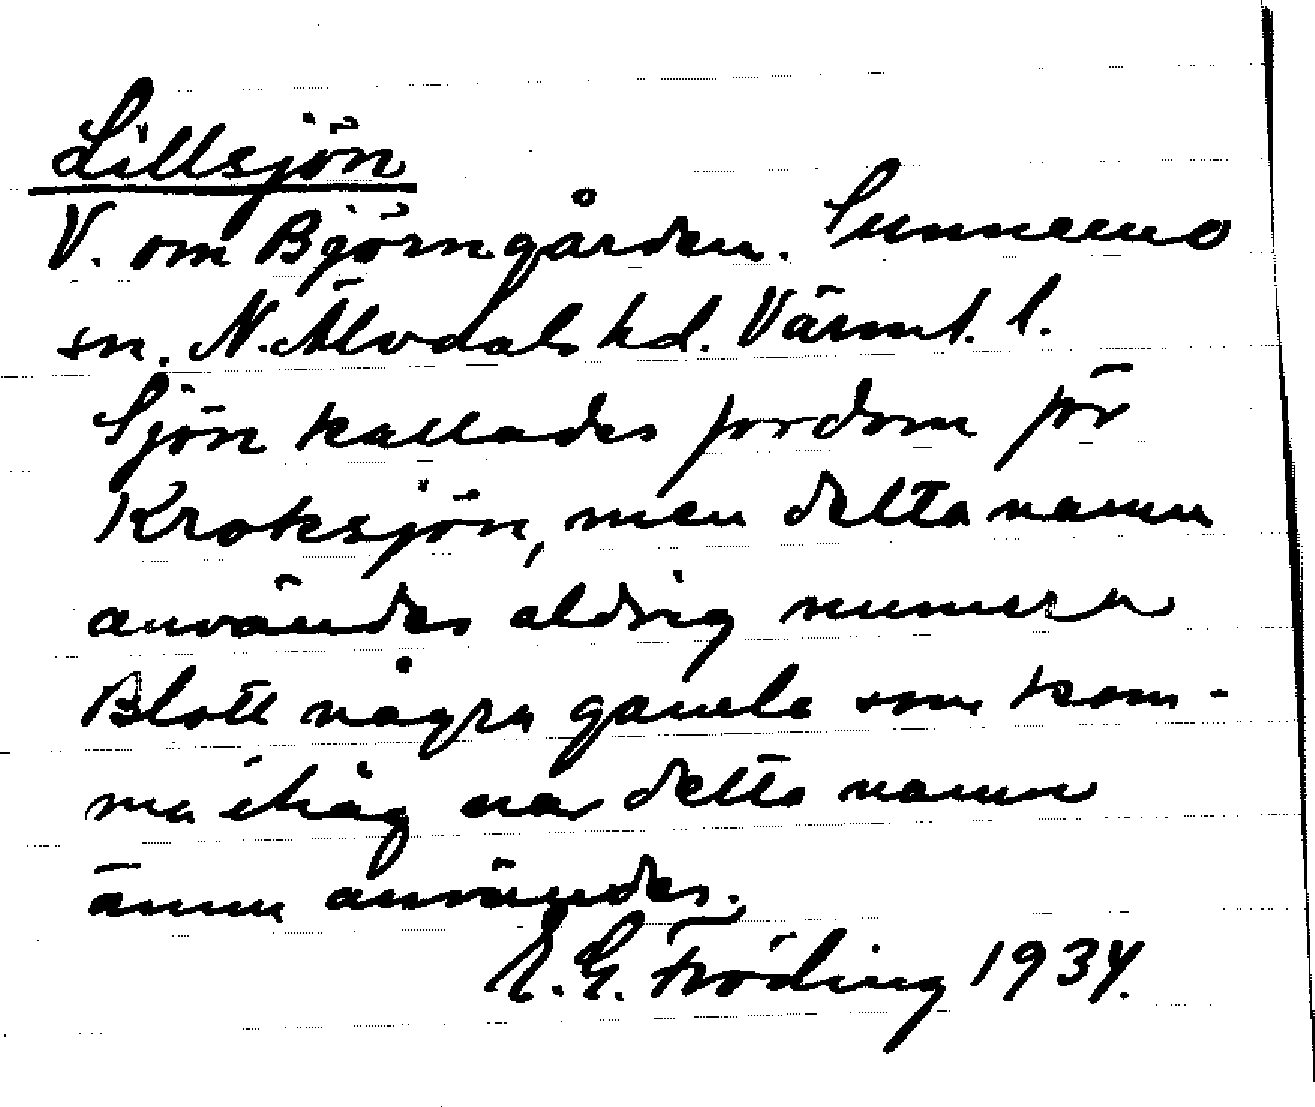 Lillsjön
V. om Björngården. Sunnemo
sn. N. Älvdals hd. Värml. l.
Sjön kallades fordom för
Kroksjön, men detta namn
användes aldrig numera
Blott några gamla som kom-
ma ihåg när detta namn
ännu användes.
E. G. Fröding 1934.